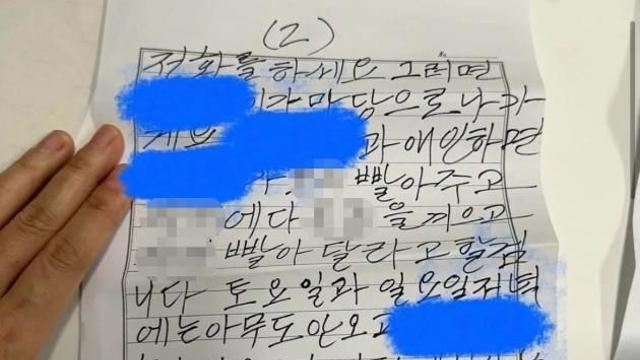 (2)
전화를하세요 그러면
마당으로나가
과 애인하면
빨아주고
에다 을끼우고
빨아달라고할겁
니다 토요일과 일요일저녁
에는아무도안오고